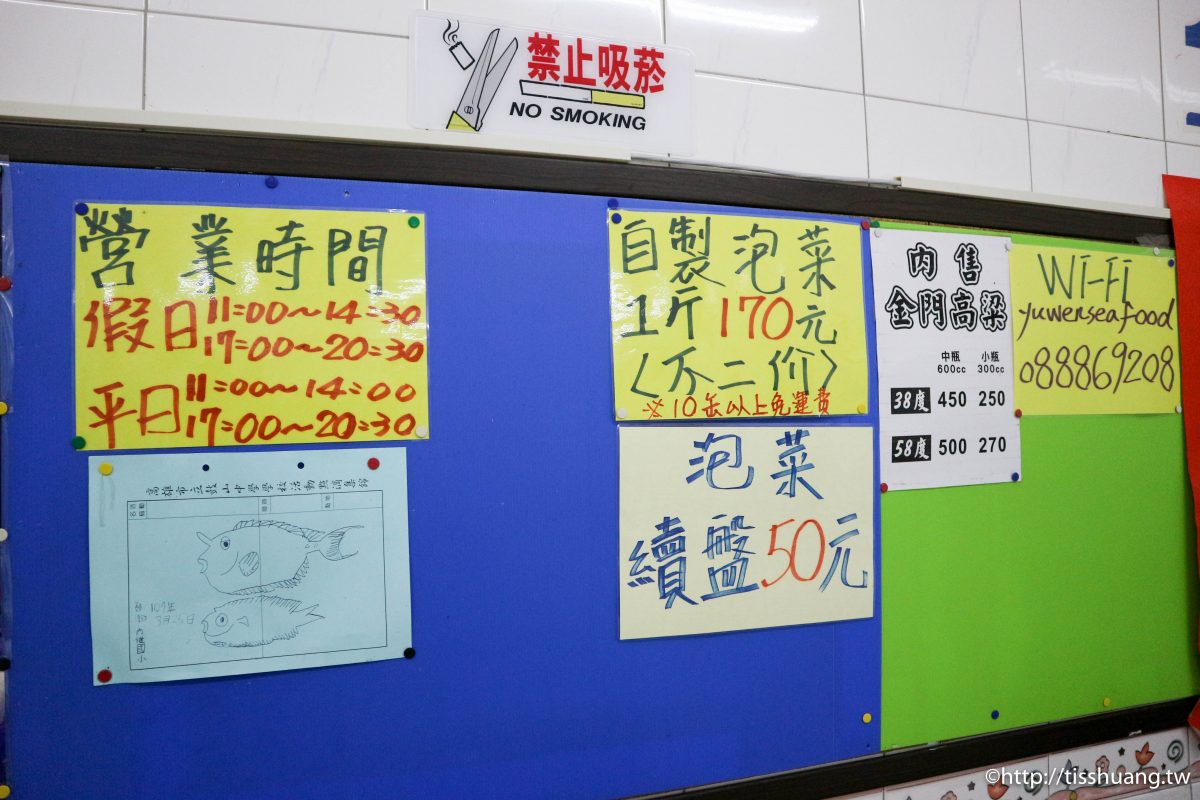 禁止吸菸
NO SMOKING
營業時間
假日 11:00~14:30
17:00~20:30
平日 11:00~14:00
17:00~20:30
高雄市立鼓山中學學校活動點滴集錦
107年
自製泡菜
1斤170元
〈不二价〉
※10缶以上免運費
泡菜
續盤50元
內售
金門高粱
中瓶 小瓶
600cc 300cc
38度 450 250
58度 500 270
Wi-Fi
yuwenseafood
088869208
©http://tisshuang.tw